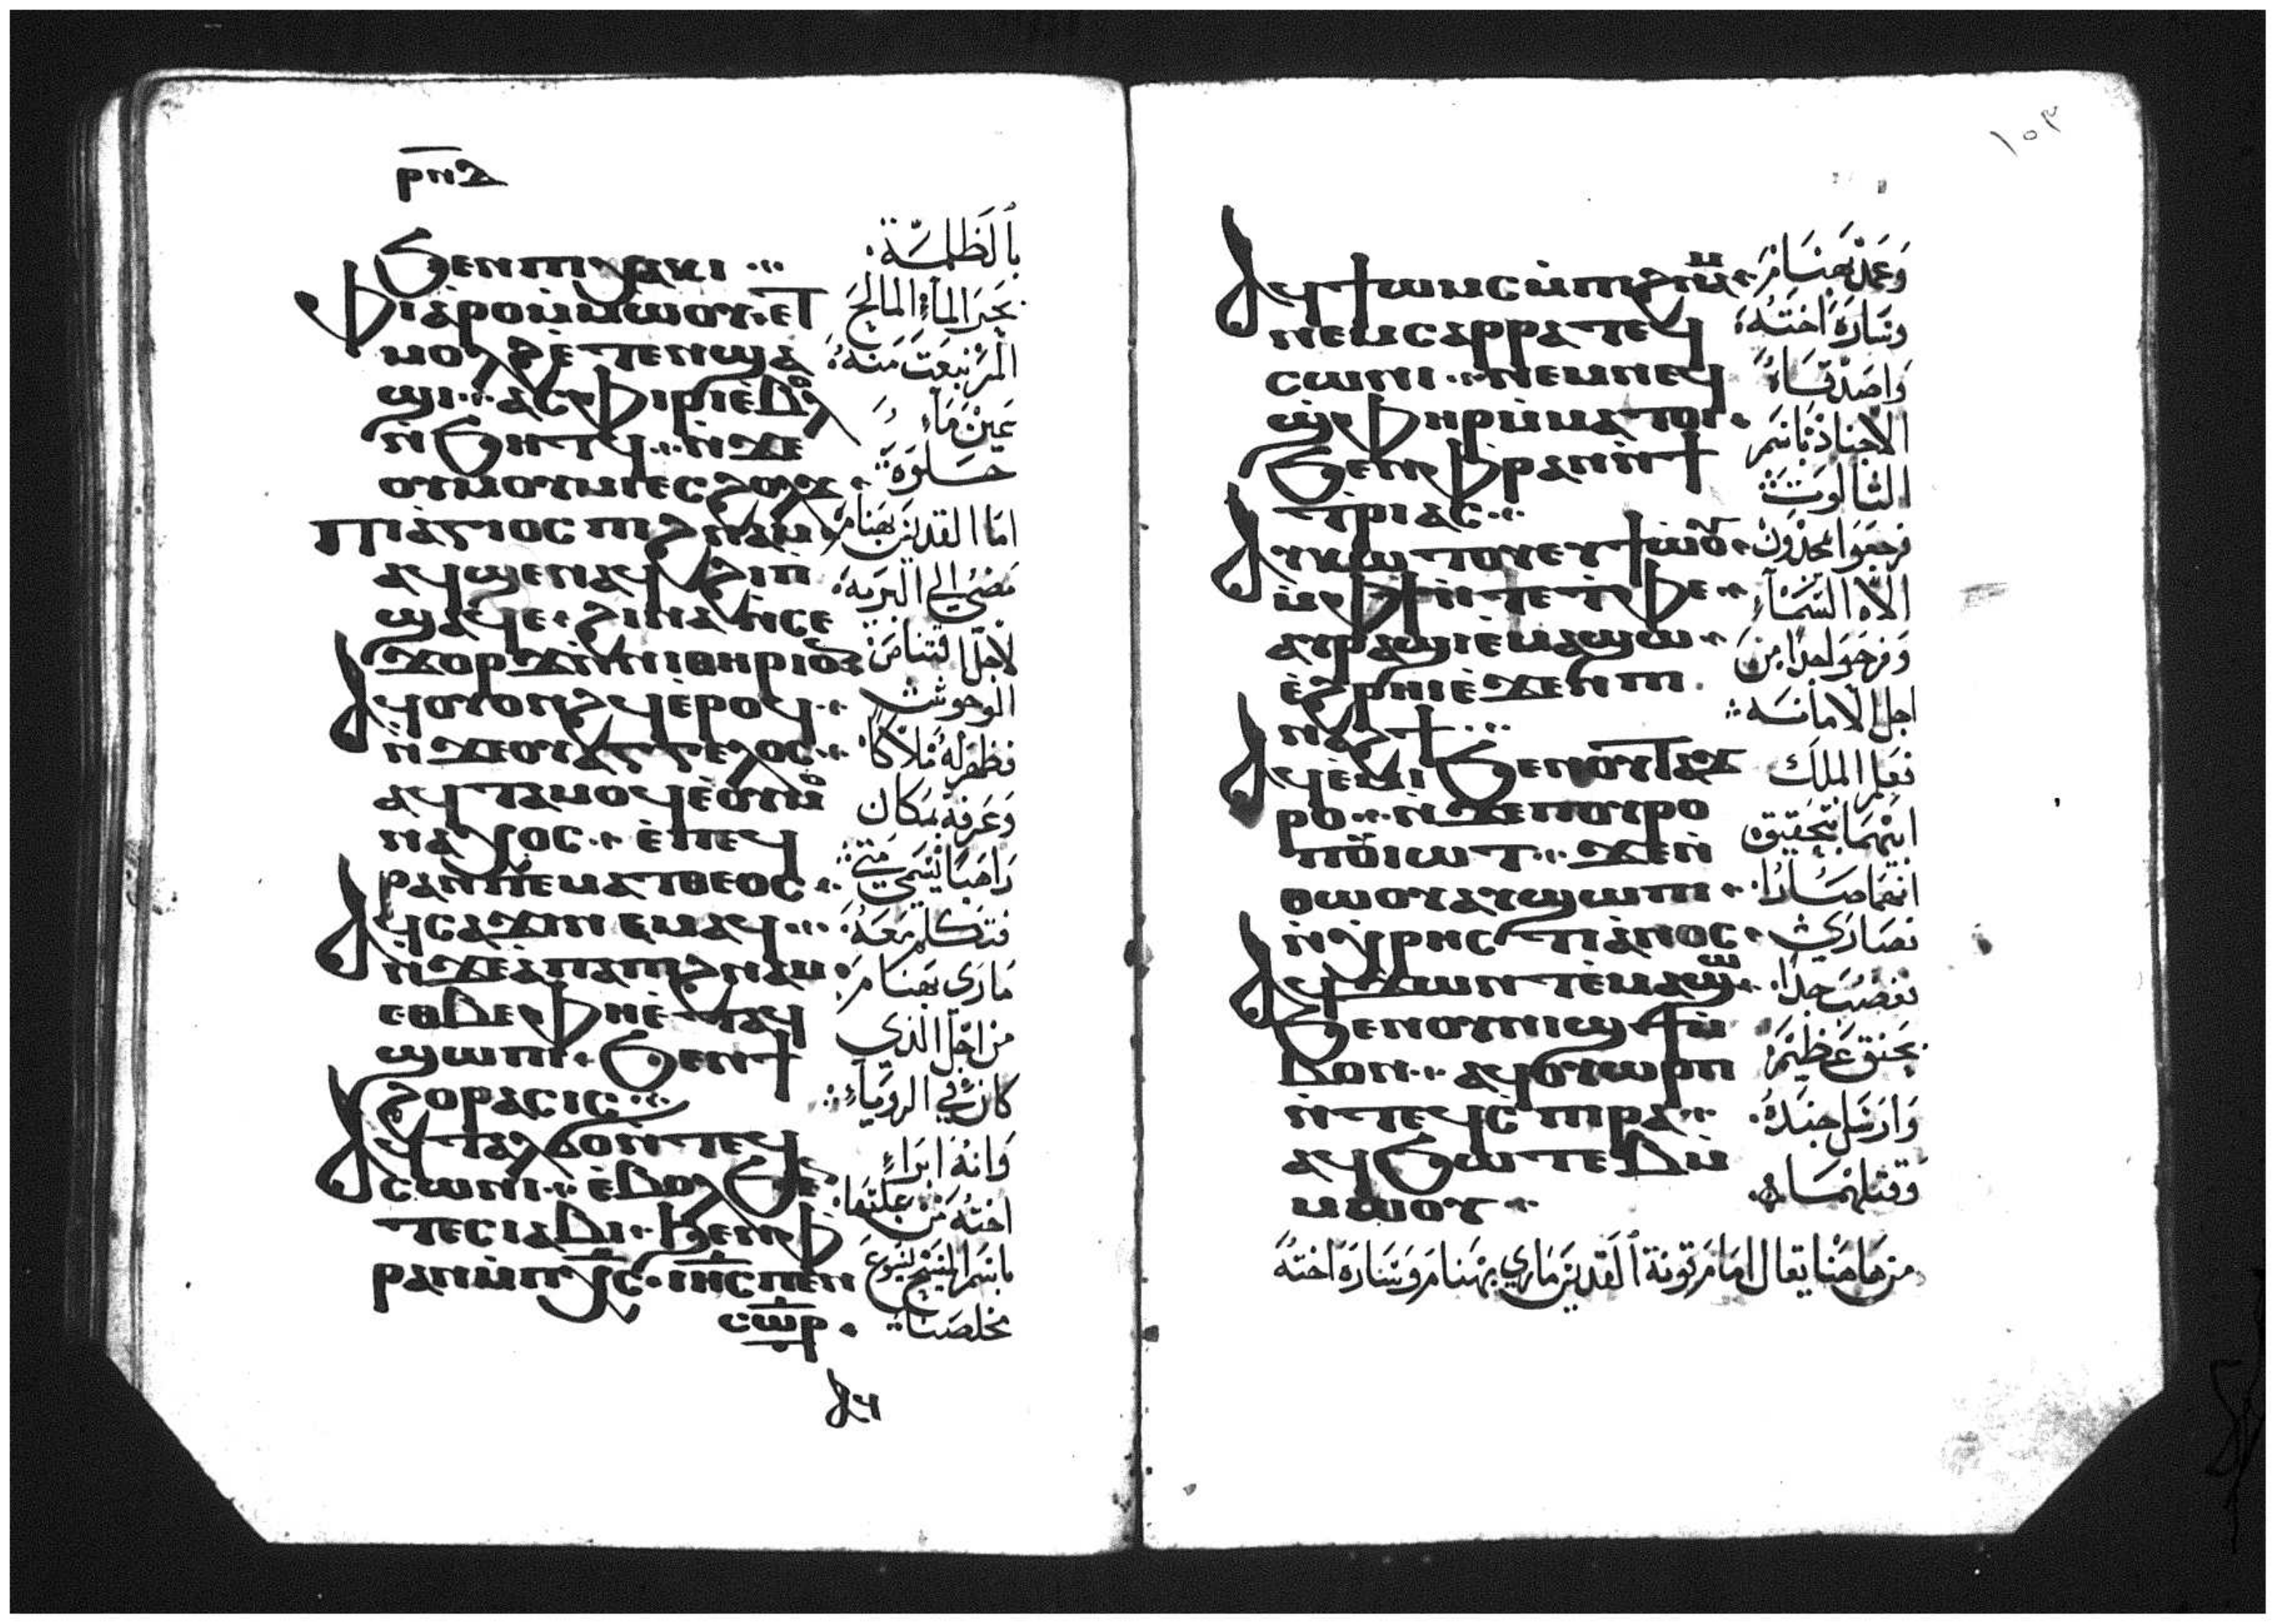 ⲣⲛⲇ
ϧⲉⲛⲡⲓⲭⲁⲕⲓ
ⲫⲓⲁⲣⲟⲙⲙⲱⲟⲩ ⲉⲧ
ⲙⲟⲗϩ ⲉⲧⲉⲛϣⲁ
ϣⲓ ⲁⲥⲫⲓⲣⲓ ⲉⲃⲟⲗ
ⲛϧⲏⲧϥ ⲛϫⲉ
ⲟⲩⲙⲟⲩⲙⲓ ⲉⲥϩⲟⲗϫ
ⲡⲓⲁⲅⲓⲟⲥ ⲡⲉϩⲛⲁⲙ
ⲁϥϣⲉⲛⲁϥ ϩⲓⲡ
ϣⲁϥⲉ ϩⲓⲛⲁ ⲛⲥⲉ
ϫⲟⲣϫ ⲛⲛⲓⲑⲏⲣⲓⲟⲛ
ⲁϥⲟⲩⲟⲛϩϥ ⲉⲣⲟϥ
ⲛϫⲉⲟⲩⲁⲅⲅⲉⲗⲟⲥ
ⲁϥⲧⲁⲙⲟϥ ⲉⲟⲩⲙ
ⲛⲁⲭⲟⲥ ⲉⲡⲉϥ
ⲣⲁⲛ ⲡⲉ ⲙⲁⲧⲑⲉⲟⲥ
ⲁϥⲥⲁϫⲓ ⲛⲉⲙⲁϥ
ⲛϫⲉ ⲁⲡⲁ ⲡⲉϩⲛⲁⲙ
ⲉⲑⲃⲉ ⲫⲏⲉⲧⲁϥ
ϣⲱⲡⲓ ϧⲉⲛϯ
ϩⲟⲣⲁⲥⲓⲥ
ⲁϥⲧⲁⲗϭⲟ ⲛⲧⲉϥ
ⲥⲱⲛⲓ ⲉⲃⲟⲗ ϧⲉⲛ
ⲧⲉⲥⲓⲁⲃⲓ ϧⲉⲛⲫ
ⲣⲁⲛ ⲙⲡⲭⲥ ⲓⲏⲥ ⲡⲉⲛ
ⲥⲱⲣ
ⲁϥ
بٱلظلمة
بحر المآء المالح
المر نبعت منه
عين مآء
حلوة
اما القديس بهنام
مضى الى البرية
لاجل اقتناص
الوحوش
فظهر له ملاكا
وعرفه بمكان
راهبا يسمى متى
فتكلم معه
ماري بهنام
من اجل الذي
كان في الرويآء
وانه ابراء
اخته من علتها
باسم المسيح ليسوع
مخلصنا
١٥٣
ⲁϥϯⲱⲙⲥ ⲙⲡⲉϩⲛⲙ
ⲛⲉⲙ ⲥⲁⲣⲣⲁ ⲧⲉϥ
ⲥⲱⲛⲓ ⲛⲉⲙ ⲛⲉϥ
ϣⲫⲏⲣ ⲙⲙⲁⲧⲟⲓ
ϧⲉⲛ ⲫⲣⲁⲛ ⲛϯ
ⲧⲣⲓⲁⲥ
ⲁⲩⲕⲱⲧⲟⲩ ⲉⲩϯⲱⲟⲩ
ⲙⲫϯ ⲛⲧⲉ ⲧⲫⲉ
ⲁⲩⲣⲁϣⲓ ⲉⲙⲁϣⲱ
ⲉϩⲣⲏⲓ ⲉϫⲉⲛ ⲡⲓ
ⲛⲁϩϯ
ⲁϥⲉⲙⲓ ϧⲉⲛⲟⲩⲧⲁϫ
ⲣⲟ ⲛϫⲉ ⲡⲟⲩⲣⲟ
ⲡⲟⲩⲓⲱⲧ ϫⲉ ⲛ
ⲑⲱⲟⲩ ⲁⲩϣⲱⲡⲓ
ⲛⲭⲣⲏⲥⲧⲓⲁⲛⲟⲥ
ⲁϥϫⲱⲛⲧ ⲉⲙⲁϣⲱ
ϧⲉⲛⲟⲩⲛⲓϣϯ ⲙ
ⲃⲟⲛ ⲁϥⲟⲩⲱⲣⲡ
ⲛⲧⲉϥⲥⲡⲓⲣⲁ
ⲁϥϧⲱⲧⲉⲃ ⲙ
ⲙⲱⲟⲩ
وعمد بهنام
وساره اخته
واصدقاه
الاجناد باسم
الثالوت
فرجعوا يمجدون
الاه السمآء
وفرحوا جدا من
اجل الامانه
فعلم الملك
ابيهما بتحقيق
انهما صارا
نصارى
فغضب جدا
بحنق عظيم
وارسل جنده
وقتلهما
من هاهنا يقال اما مرتونة ٱلقديس ماري بهنام وسارة اخته